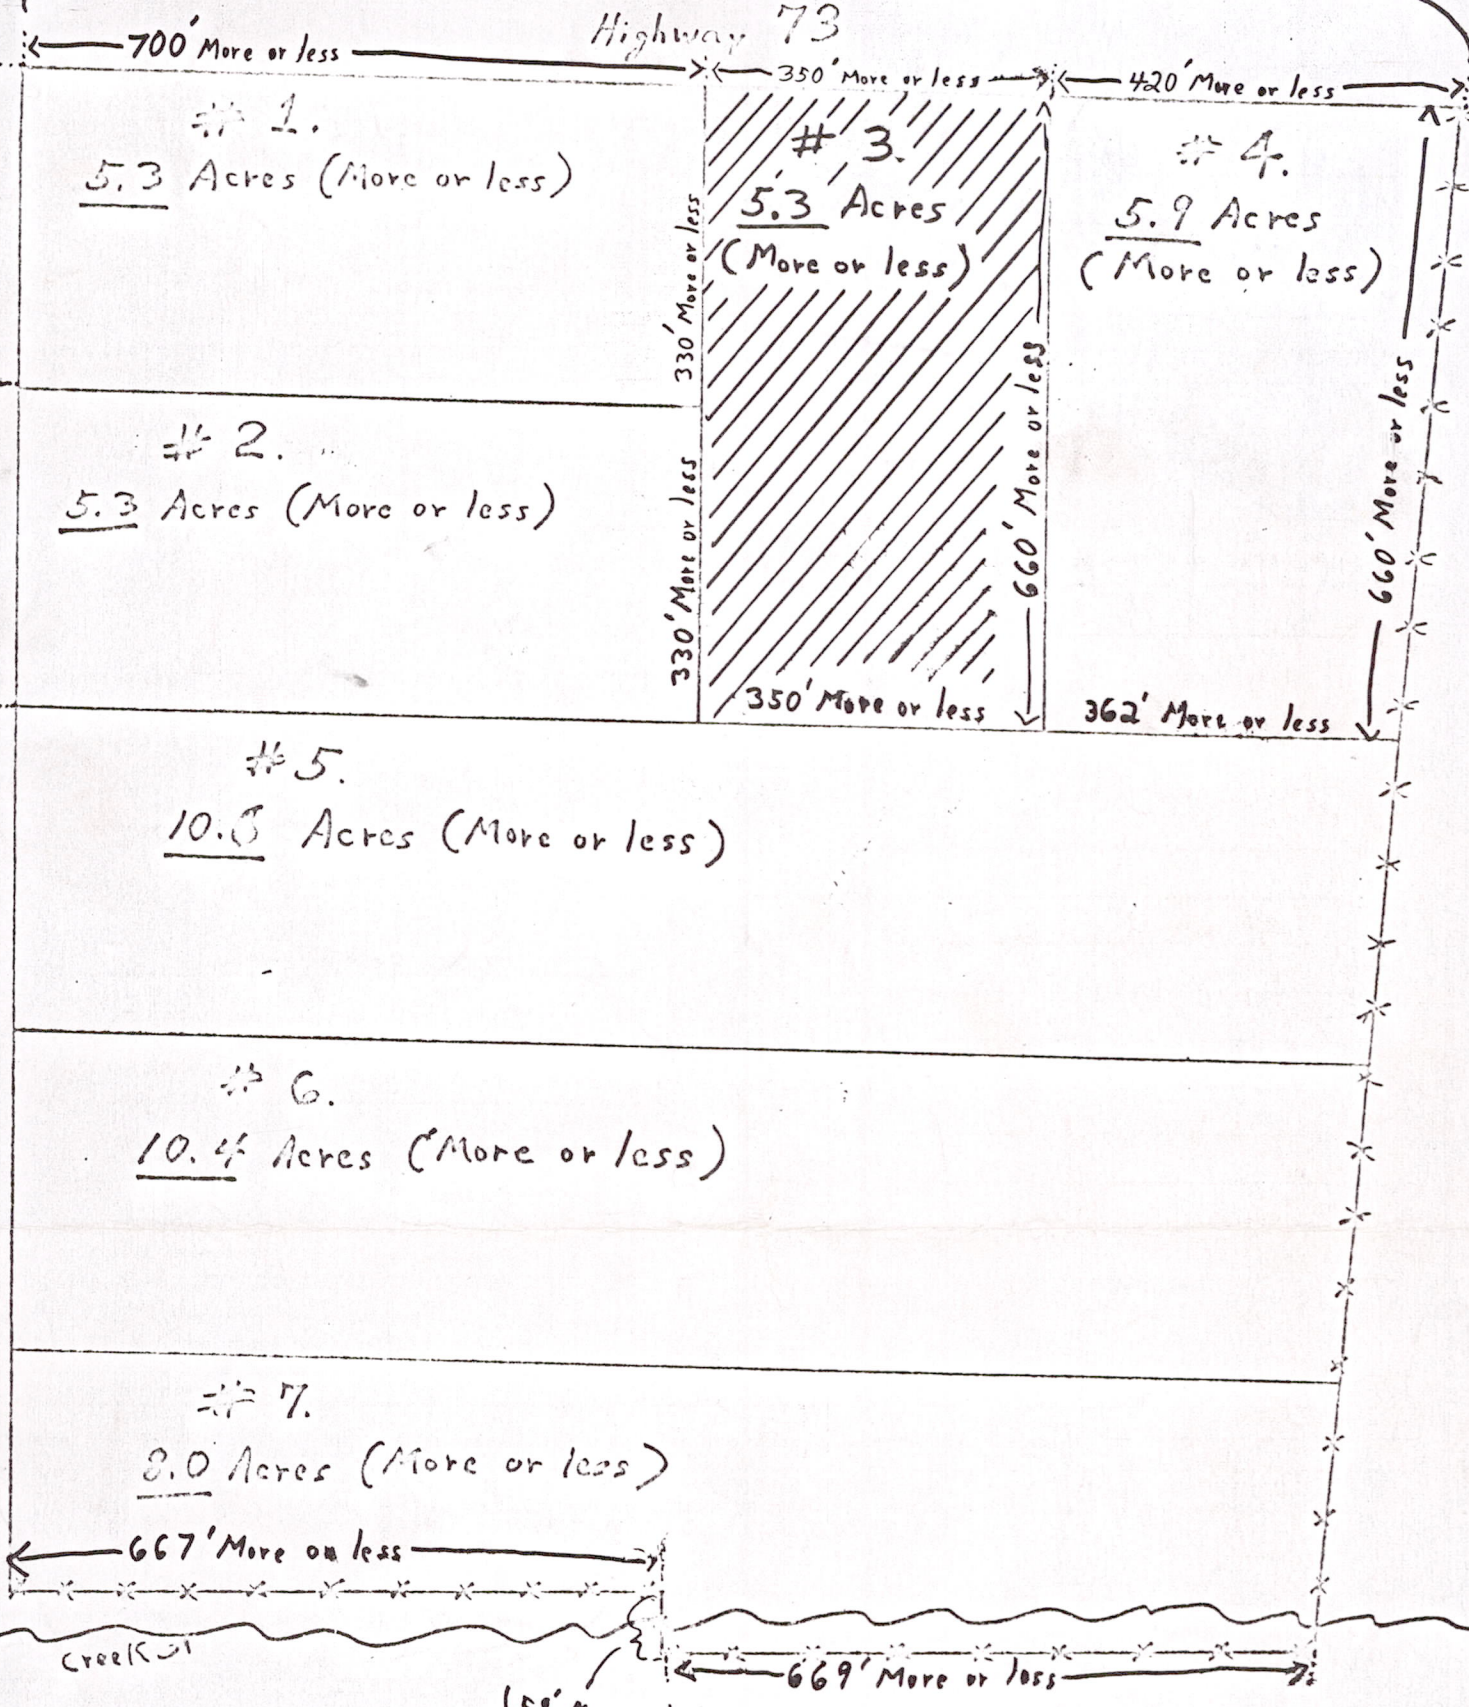 Highway 73
700' More or less
350' More or less
420' More or less
# 1.
5.3 Acres (More or less)
330' More or less
# 3.
5.3 Acres
(More or less)
660' More or less
350' More or less
# 4.
5.9 Acres
(More or less)
660' More or less
362' More or less
# 2.
5.3 Acres (More or less)
330' More or less
# 5.
Acres (More or less)
# 6.
10.4 Acres (More or less)
# 7.
8.0 Acres (More or less)
667' More or less
Creek
669' More or less